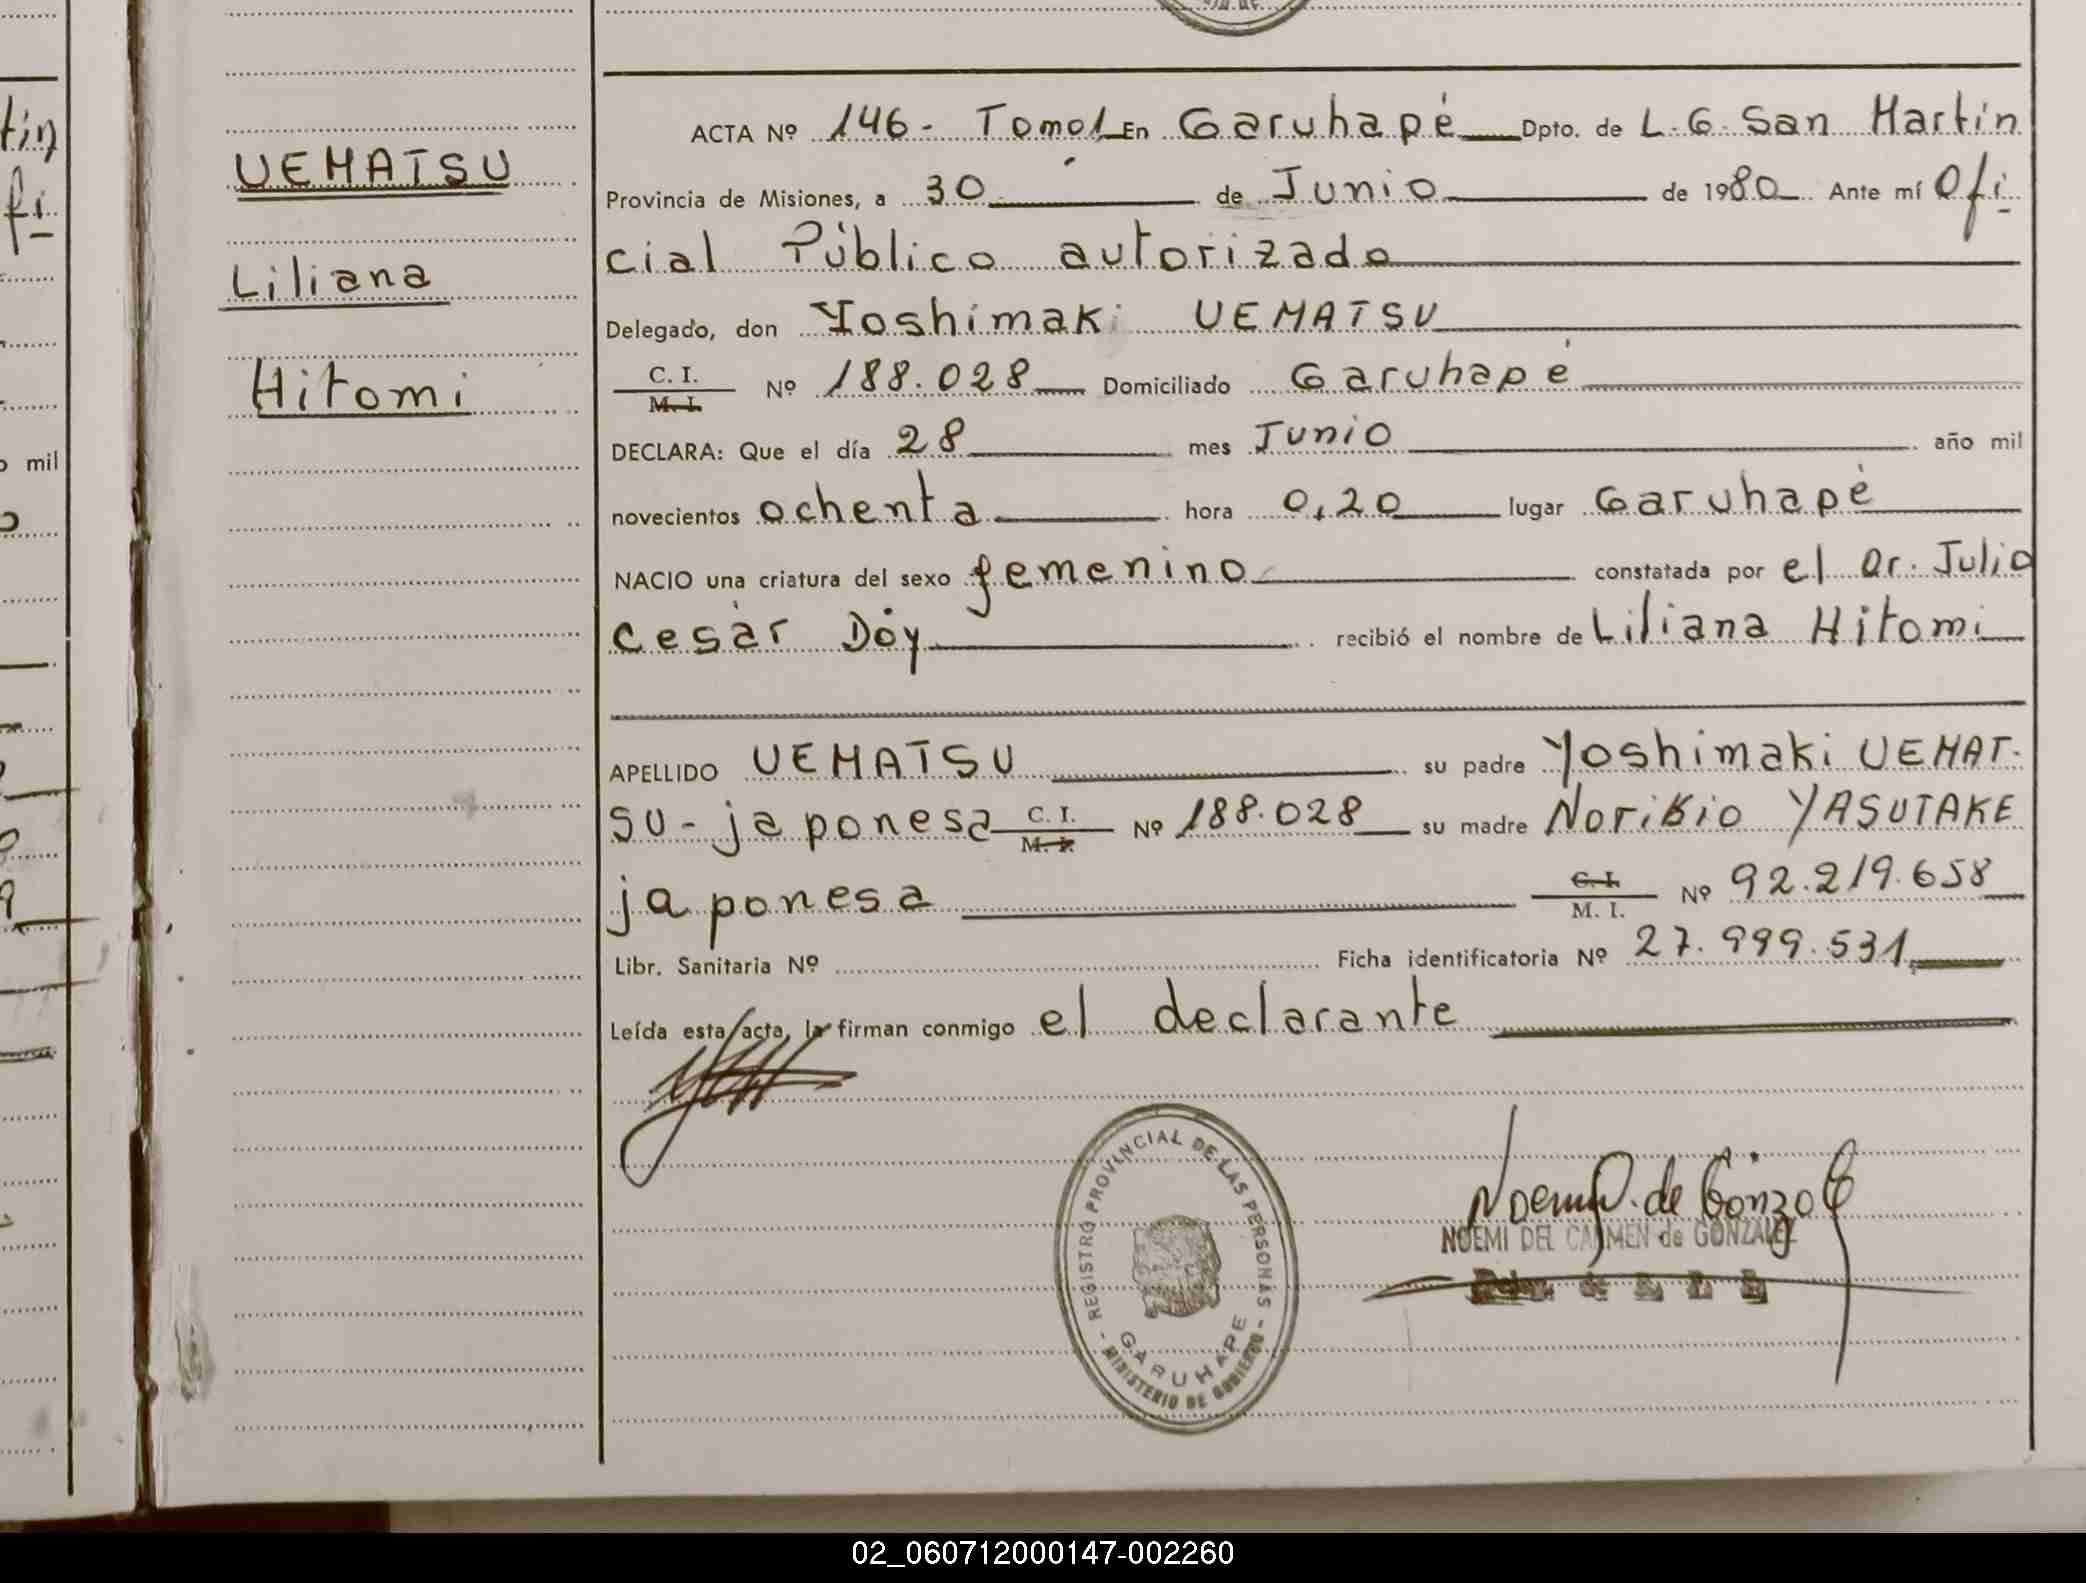 UEMATSU
Liliana
Hitomi
ACTA Nº 146- Tomo 1 En Garuhapé Dpto. de L. G. San Martin
Provincia de Misiones, a 30 de Junio de 1980 Ante mí Ofi
cial Público autorizado
Delegado, don Yoshimaki UEMATSU
C. I.
M. I. Nº 188.028 Domiciliado Garuhapé
DECLARA: Que el día 28 mes Junio año mil
novecientos ochenta hora 0,20 lugar Garuhapé
NACIO una criatura del sexo femenino constatada por el Dr. Julio
Cesár Dóy recibió el nombre de Liliana Hitomi
APELLIDO UEMATSU su padre Yoshimaki UEMAT-
SU- japonesa C. I. M. I. Nº 188.028 su madre NoriKio YASUTAKE
japonesa C. I. M. I. Nº 92.219.658
Libr. Sanitaria Nº Ficha identificatoria Nº 27.999.531
Leída esta acta, la firman conmigo el declarante
REGISTRO PROVINCIAL DE LAS PERSONAS
GARUHAPE
MINISTERIO DE GOBIERNO
NOEMI DEL CARMEN de GONZALEZ
02_060712000147-002260